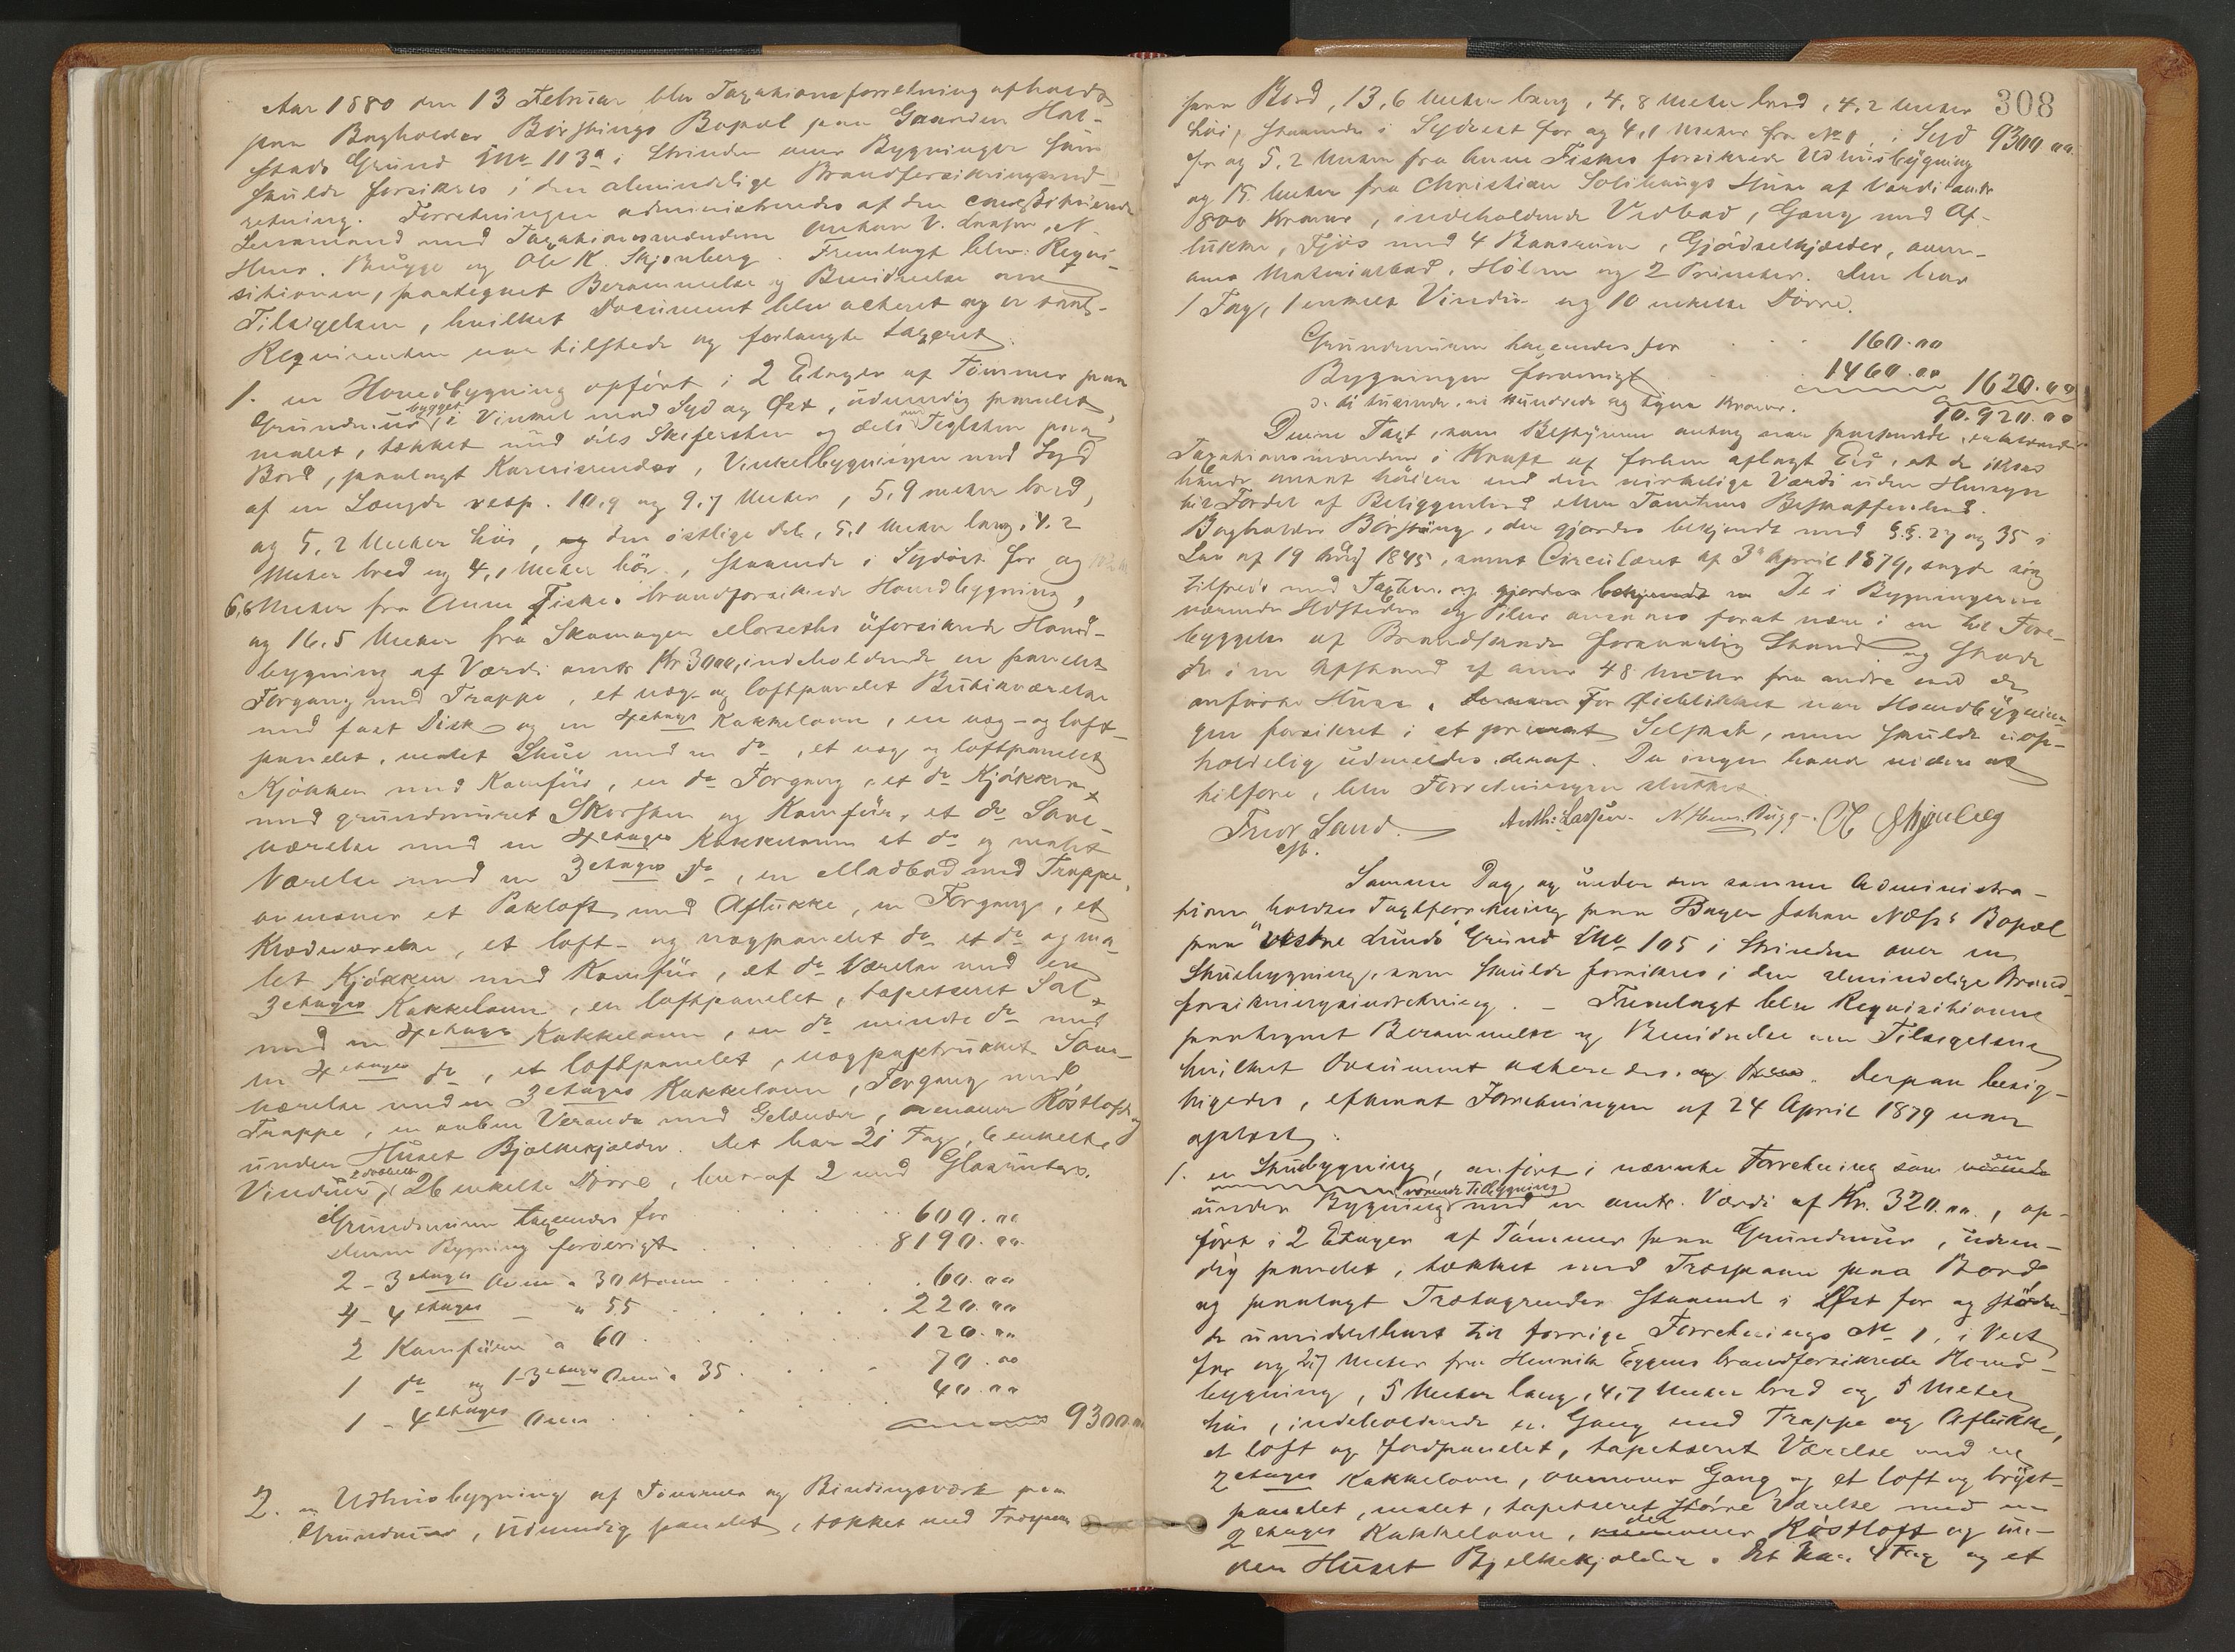 Aar 1880 den 13 Februar blev Taxationsforretning afholdt
paa Bogholder Børstings Bopæl paa Gaarden Hal-
stads Grund No 113a i Strinden over Bygninger som
skulde forsikres i den almindelige Brandforsikringsind-
retning. Forretningen administreredes af den constituerede
Lensmand med Taxationsmændene Anthon V. Larsen, N.
Hmr. Bugge og Ole K. Skjønberg. Fremlagt blev Requi-
sitionen, paategnet Berammelse og Bevidnelse om
Tilsigelsen, hvilket Document blev acteret og er saal.
Requirenten var tilstede og forlangte taxeret
1. en Hovedbygning opført i 2 Etager af Tømmer paa
Grundmur, bygget i Vinkel mod Syd og Øst, udvendig panelet,
malet, tækket med dels Skifersten og dels Teglsten paa
Bord, paalagt Karnisrender, Vinkelbygningen mod Syd
af en Længde resp. 10,9 og 9,7 Meter, 5,9 meter bred,
og 5,2 Meter høi, og den østlige del, 5,1 Meter lang, 4,2
Meter bred og 4,1 Meter høi, staaende i Sydøst for og
6,6 Meter fra Anne Fiskes brandforsikrede Hovedbygning,
og 16,5 Meter fra Skomager Morseths uforsikrede Hoved-
bygning af Værdi omtr. Kr 3000, indeholdende en panelet
Forgang med Trappe, et væg- og loftpanelet Butikværelse
med fast Disk og en 4etages Kakkelovn, en væg- og loft-
panelet, malet Stue med en do, et væg og loftpanelet
Kjøkken med Komfür, en do Forgang, et do Kjøkken
med grundmuret Skorsten og Komfür, et do Sove-
værelse med en 4etages Kakkelovn et do og malet
Værelse med en 3etages do, en Madbod med Trappe,
ovenover et Pakloft med Aflukke, en Forgang, et
Klædeværelse, et loft- og vægpanelet do et do og ma-
let Kjøkken med Komfür, et do Værelse med en
3etages Kakkelovn, en loftpanelet, tapetseret Sal
med en 4etages Kakkelovn, en do mindre do med
en 4etages do, et loftpanelet, vægpaptrukket Sove-
værelse med en 3etages Kakkelovn, Forgang med
Trappe, en aaben Veranda med Gelænder, ovenover Røstloft og
under Huset Bjælkekjælder. Det har 21 Fag, 6 enkelte
Vinduer, 2 dobbelte 26 enkelte Dørre, hvoraf 2 med Glasruder.
Grundmuren taxeredes for 600.00
denne Bygning forøvrigt 8190.00
2 - 3etages Ovne a 30 Kroner 60.00
4 - 4etages — " 55 220.00
2 Komfürer a 60 120.00
1 do og 1-3etages Ovn a 35 70.00
1 - 4etages Ovn 40.00
9300.00
2. en Udhusbygning af Tømmer og Bindingsværk paa
Grundmur, udvendig panelet, tækket med Træspaan
308
paa Bord, 13,6 Meter lang, 4,8 Meter bred, 4,2 Meter
høi, staaende i Sydvest for og 4,1 Meter fra No 1, i Syd 9300.00
for og 5,2 Meter fra Anne Fiskes forsikrede Udhusbygning
og 15 Meter fra Christian Solihaugs Huse af Værdi omtr
1800 Kroner, indeholdende Vedbod, Gang med Af-
lukke, Fjøs med 4 Baasrum, Gjødselkjælder, oven-
over Materialbod, Hølem og 2 Priveter. Den har
1 Fag, 1 enkelt Vindu og 10 enkelte Dørre.
Grundmuren taxeredes for 160.00
Bygningen forøvrigt 1460.00 1620.00
d. ti tusinde, ni hundrede og tyve Kroner. 10.920.00
Denne Taxt, som Bestyreren antog var passende, erklærede
Taxationsmændene i Kraft af forhen aflagt Ed, at de ikke
havde ansat høiere end den virkelige Værdi uden Hensyn
til Fordel af Beliggenhed eller Tomtens Beskaffenhed.
Bogholder Børsting, der gjordes bekjendt med §.§. 27 og 35 i
Lov af 19 Aug 1845, samt Circulæret af 3die April 1879, sagde sig
tilfreds med Taxten og gjordes bekjendt m De i Bygningerne
værende Ildsteder og Piber ansaaes forat være i en til Fore-
byggelse af Brandskade forsvarlig Stand og staar
de i en Afstand af over 48 Meter fra andre end de
anførte Huse. For Øieblikket var Hovedbygnin-
gen forsikret i et privat Selskab, men skulde uop-
holdelig udmeldes deraf. Da ingen havde videre at
tilføre, blev Forretningen sluttet.
Fredr. Sand. Anth: Larsen. N. Hmr. Bugge. O K Skjønberg
cst.
Samme Dag og under den samme Administra-
tion holdtes Taxtforretning paa Bager Johan Næss's Bopæl
paa "vestre Lunds" Grund No 105 i Strinden over en
Stuebygning, som skulde forsikres i den almindelige Brand-
forsikringsindretning. — Fremlagt blev Requisitionen
paategnet Berammelse og Bevidnelse om Tilsigelsen
hvilket Document acteredes. Derpaa besig-
tigedes, efterat Forretningen af 24 April 1879 var
oplæst:
1. en Stuebygning, anført i nævnte Forretning som en værende
under Bygning værende Tilbygning med en omtr. Værdi af Kr. 320.00, op-
ført i 2 Etager af Tømmer paa Grundmur, udven-
dig panelet, tækket med Træspaan paa Bord
og paalagt Trætagrender staaende i Øst for og støden-
de umiddelbart til forrige Forretnings No 1, i Vest
for og 27 Meter fra Henrik Eggens brandforsikrede Hoved-
bygning, 5 Meter lang, 4,7 Meter bred og 5 Meter
høi, indeholdende en Gang med Trappe og Aflukke,
et loft og fodpanelet, tapetseret Værelse med en
2etages Kakkelovn, ovenover Gang og et loft og bryst-
panelet, malet, tapetseret større Værelse med en
2etages Kakkelovn, derover Røstloft og un-
der Huset Bjelkekjælder. Det har 4 Fag og et